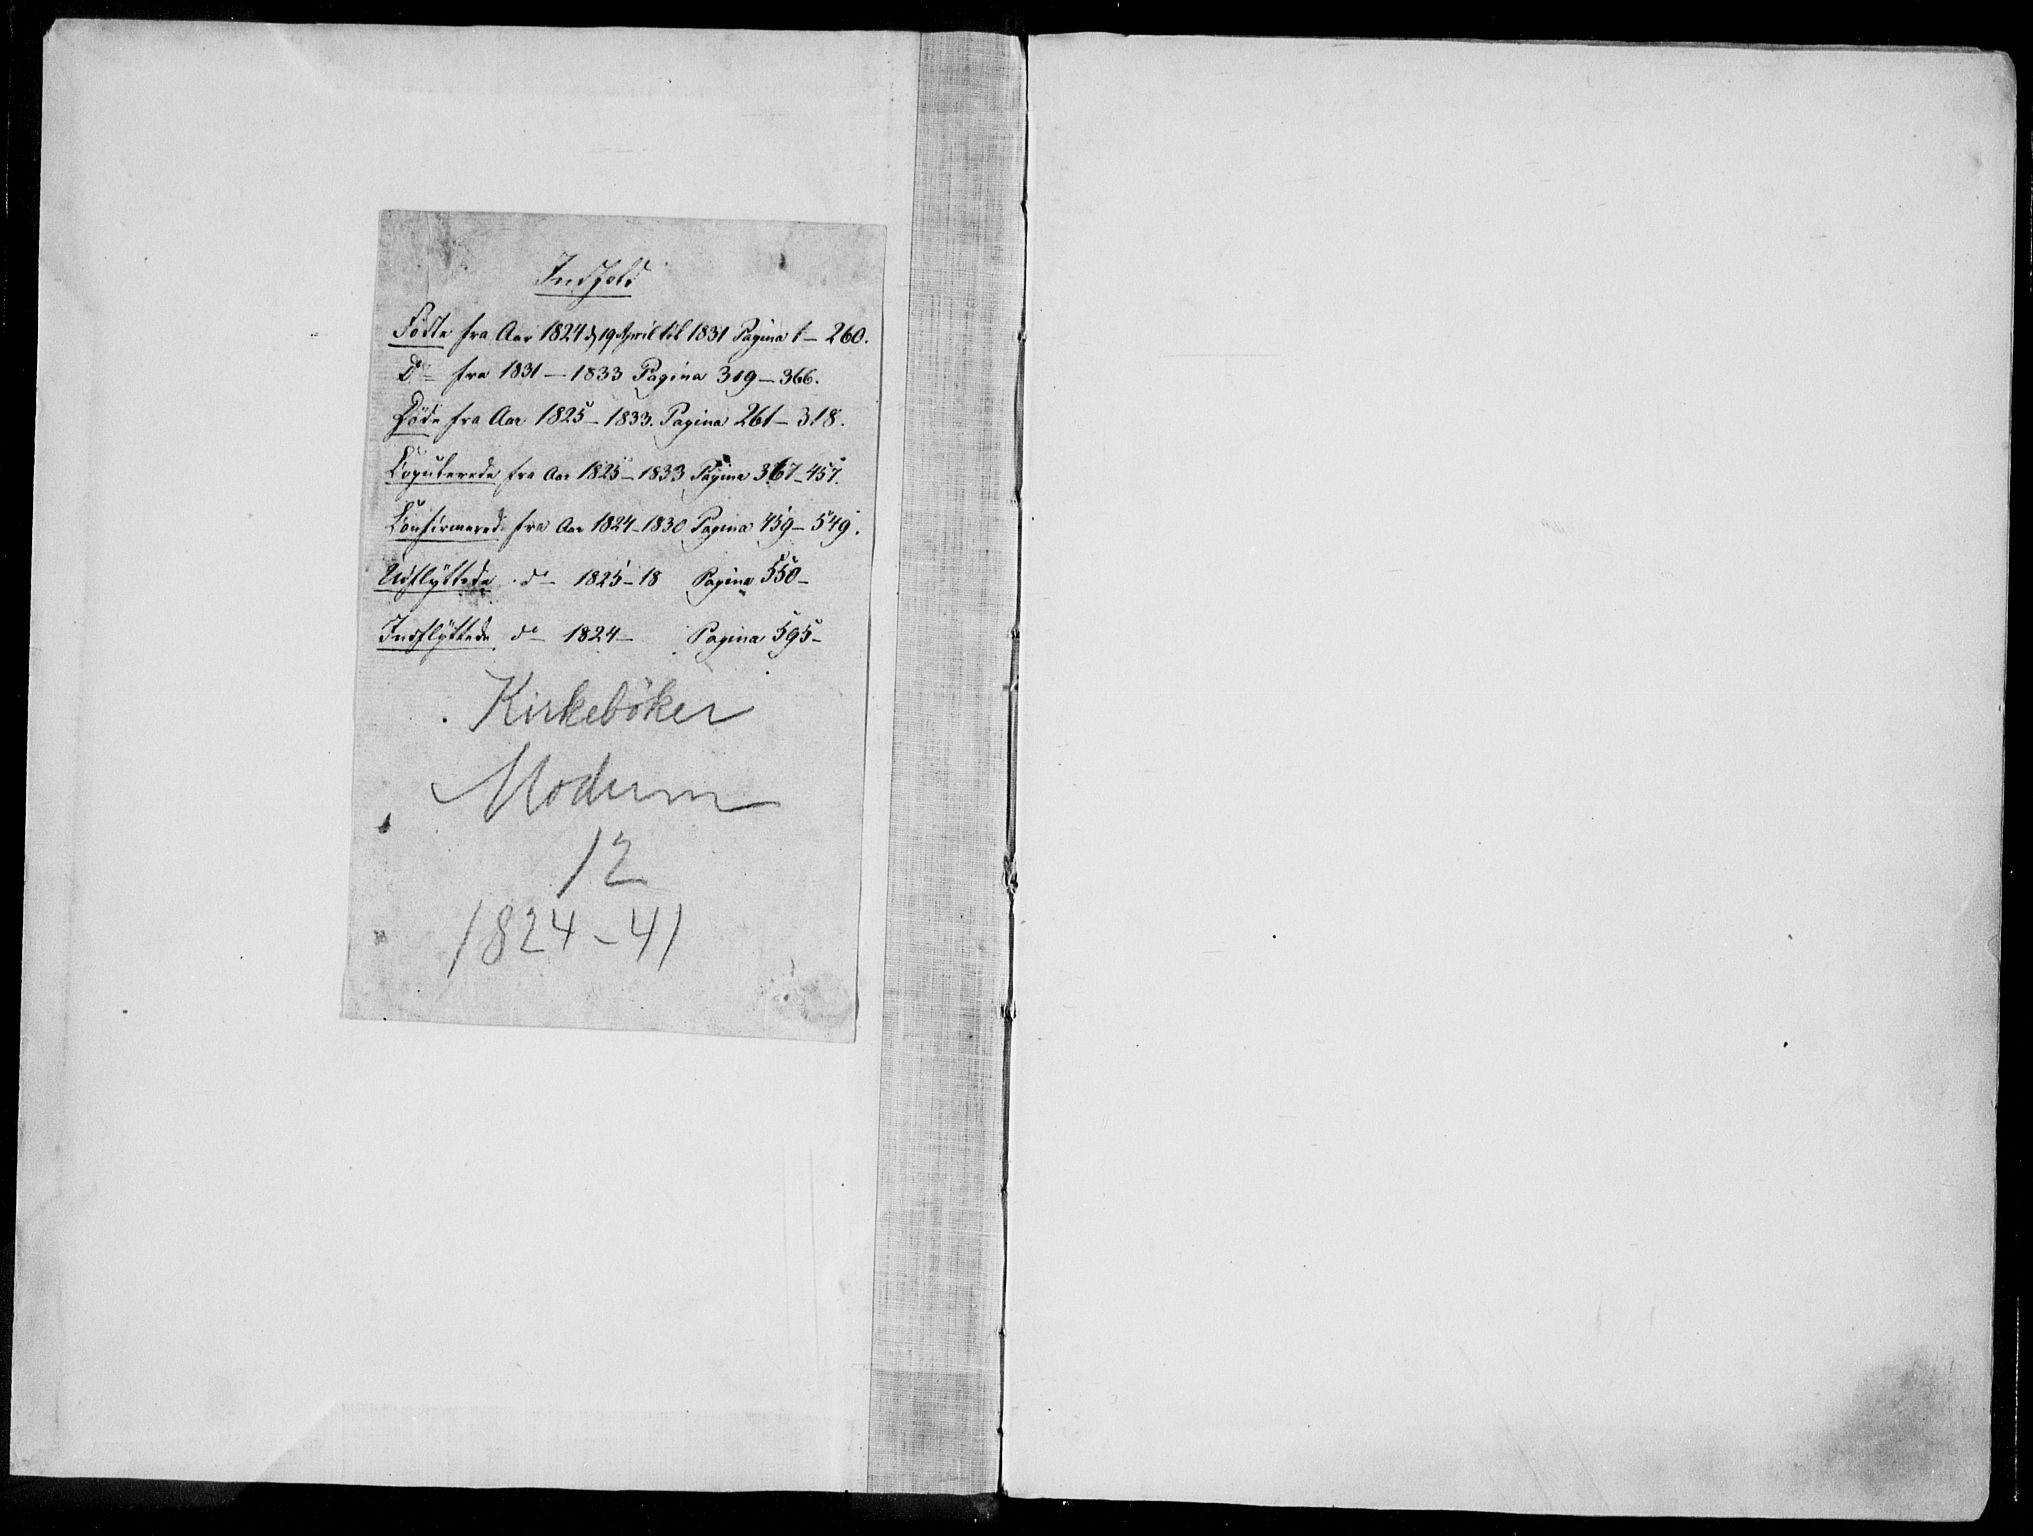 Indhold
Födte fra Aar 1824 d 19 April til 1831 Pagina 1 – 260.
Do fra 1831 – 1833 Pagina 319 – 366.
Döde fra Aar 1825 – 1833. Pagina 261 – 318.
Copulerede fra Aar 1825 – 1833 Pagina 367 – 457.
Confirmerede fra Aar 1824 – 1830 Pagina 459 – 549.
Udflyttede do 1825 – 18 Pagina 550 –
Indflyttede do 1824 – Pagina 595 –
Kirkeböker
Modum
12
1824 – 41